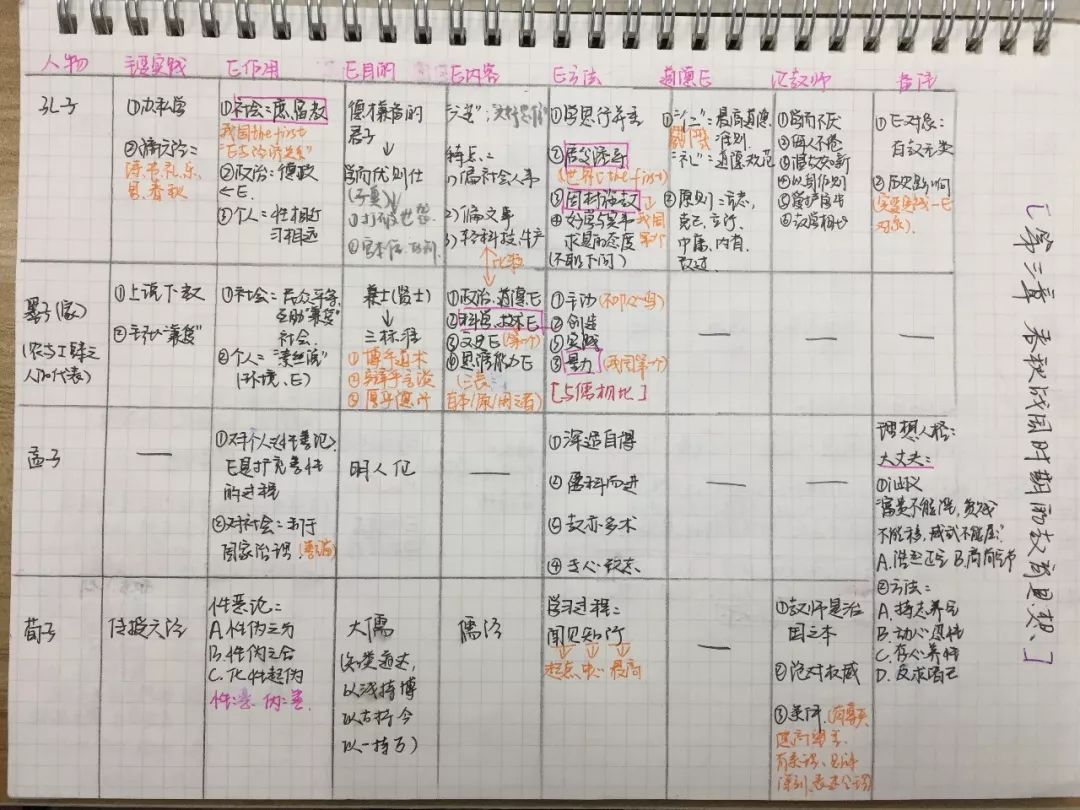 人物 主要实践 E作用 E目的 E内容 E方法 道德E 论教师 备注
[第三章 春秋战国时期的教育思想.]
孔子
①办私学
②编六经:
诗.书.礼.乐.
易.春秋
①社会:庶.富.教
我国the first
②政治:德政
←E.
③个人:性相近
习相远
德才兼备的
君子
↓
学而优则仕
(子夏)
①打破世袭
"六艺";
特点:
1)偏社会人事
2)偏文事
3)轻科技.生产
比较
①学思行并重
②启发诱导
(世界the first)
③因材施教
④好学与实事
求是的态度
(不耻下问)
我国
第一个
①"仁":最高道德
准则.
"礼":道德规范
②原则:立志.
克己.力行.
中庸.内省.
改过.
①学而不厌
②诲人不倦
③温故知新
④以身作则
⑤爱护学生
⑥教学相长
①E对象:
有教无类
②历史影响
墨子(家)
(农与工肆之
人的代表)
①上说下教
②主张"兼爱"
①社会:民众平等.
互助"兼爱"
社会.
②个人:"素丝说"
(环境、E)
兼士(贤士)
↓
三标准
①博乎道术
②辩乎言谈
③厚乎德行
①政治.道德E
②科学.技术E
③文史E(第一个)
④思维能力E
(三表:
百本/原/用之者)
①主动(不叩必鸣)
②创造
③实践
③量力(我国第一个)
[与儒相比]
—
—
—
孟子
—
①对个人(性善论)
E是扩充善性
的过程
②对社会:利于
国家治理.
明人伦
—
①深造自得
②盈科而进
③教亦多术
④专心致志.
—
—
理想人格:
大丈夫:
①含义
"富贵不能淫,贫贱
不能移,威武不能屈"
A.浩然正气 B.高尚气节
②方法:
A.持志养气
B.动心忍性
C.存心养性
D.反求诸己
荀子
传授六经
性恶论:
A.性伪之分
B.性伪之合
C.化性起伪
性:恶 伪:善.
大儒
(知类通达,
以浅持博
以古持今
以一持万)
儒经
学习过程:
闻见知行
起点 中心 最高
—
①教师是治
国之本
②绝对权威
③老师.(有尊严.